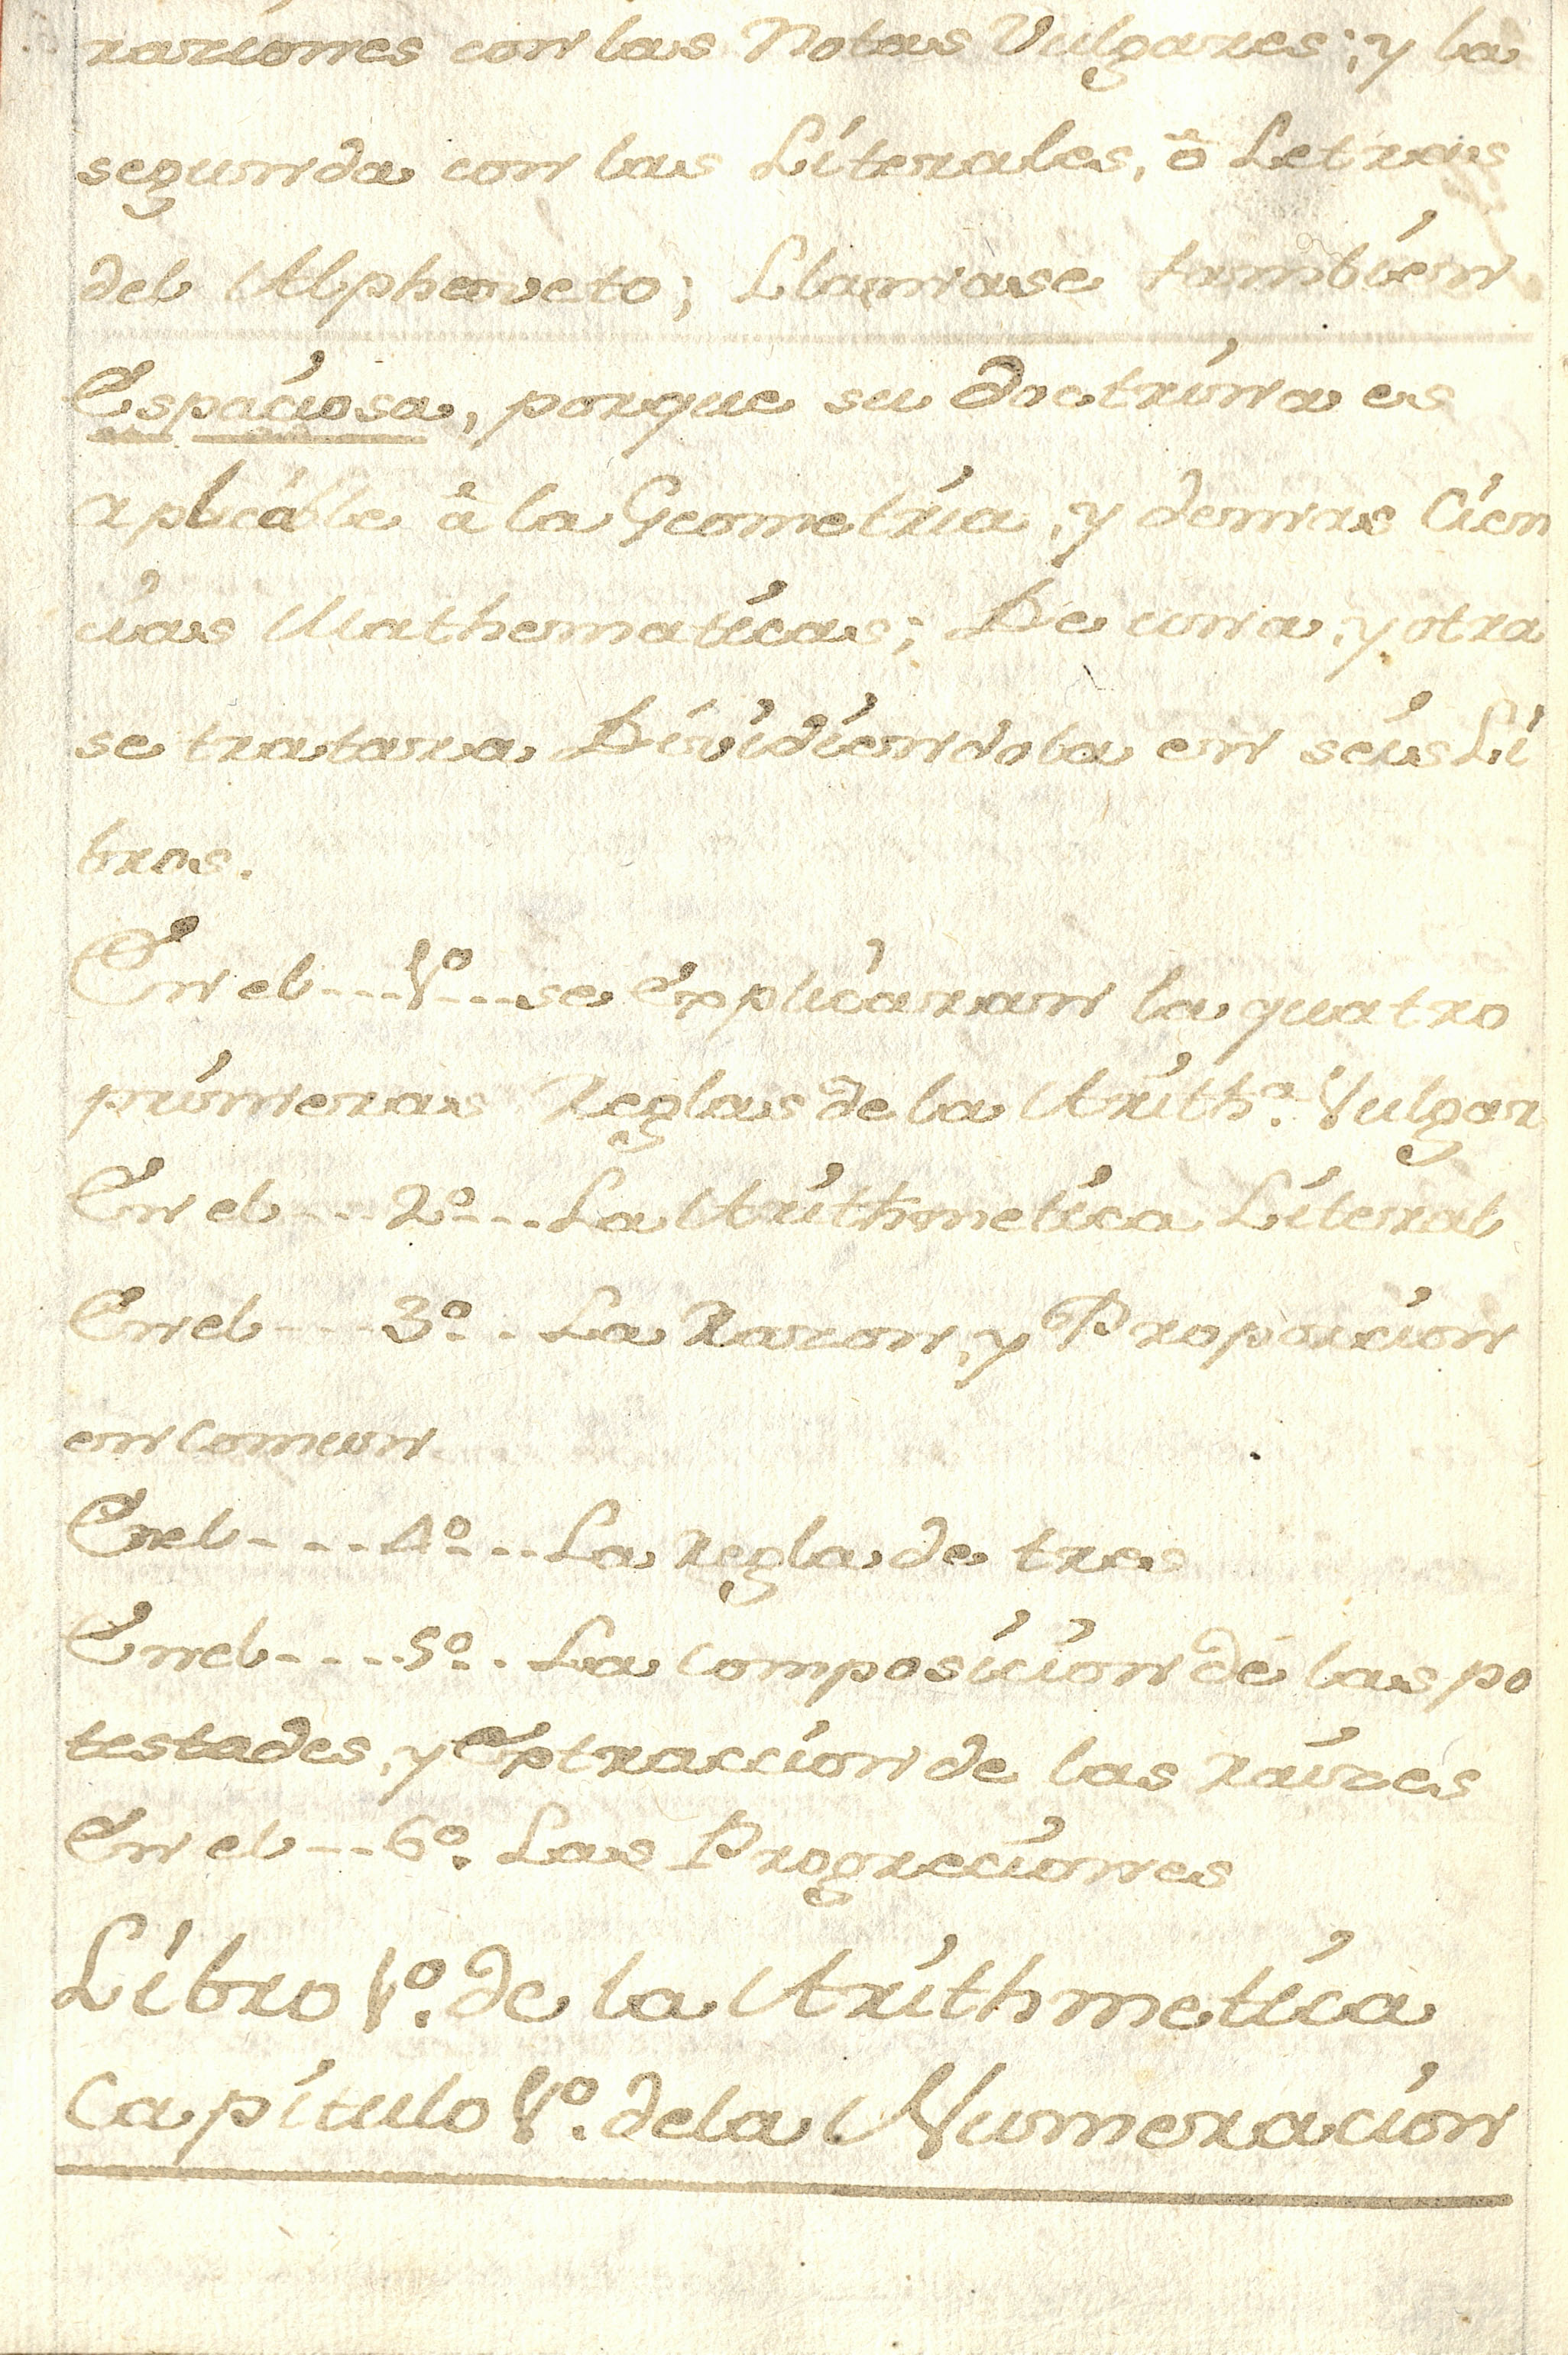 raciones con las Notas Vulgares; y la
segunda con las Literales, ò Letras
del Alphaveto; Llamase tambien
Espaciosa, porque su doctrina es
aplicable â la Geometria, y demas Cien
cias Mathematicas; De una, y otra
se tratara Dividiendola en seis Li
bros.
En el---1º---se Explicaran la quatro
primeras Reglas de la Arithª. Vulgar
En el---2º---La Arithmetica Literal
En el----3º-.La Razon, y Proporcion
en comun
En el----4º--La regla de tres
En el----5º-.La Composicion de las po
testades, y Extraccion de las raizes
En el--6º. Las Progreciones
Libro 1º. de la Arithmetica
Capitulo 1º. de la Numeracion